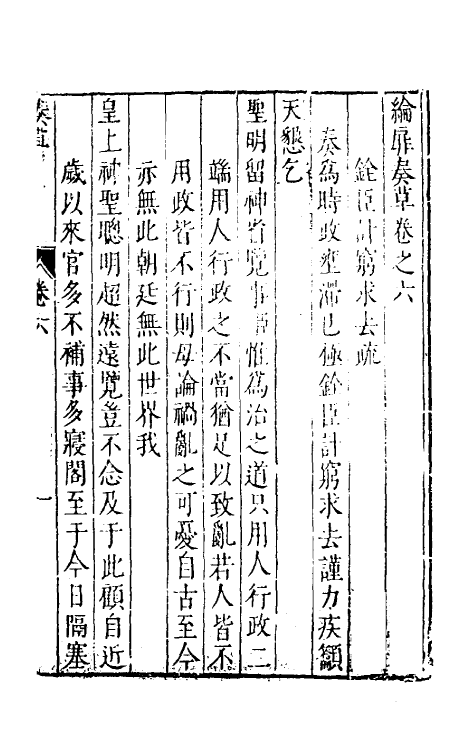 綸扉奏草卷之六
銓臣計窮求去疏
奏為時政壅滯已極銓臣計窮求去謹力疾籲
天懇乞
聖明留神省覽事臣惟為治之道只用人行政二
端用人行政之不當猶足以致亂若人皆不
用政皆不行則毋論禍亂之可憂自古至今
亦無此朝廷無此世界我
皇上神聖聰明超然遠覽豈不念及于此顧自近
歲以來官多不補事多寢閣至于今日隔塞
奏草
卷六
一